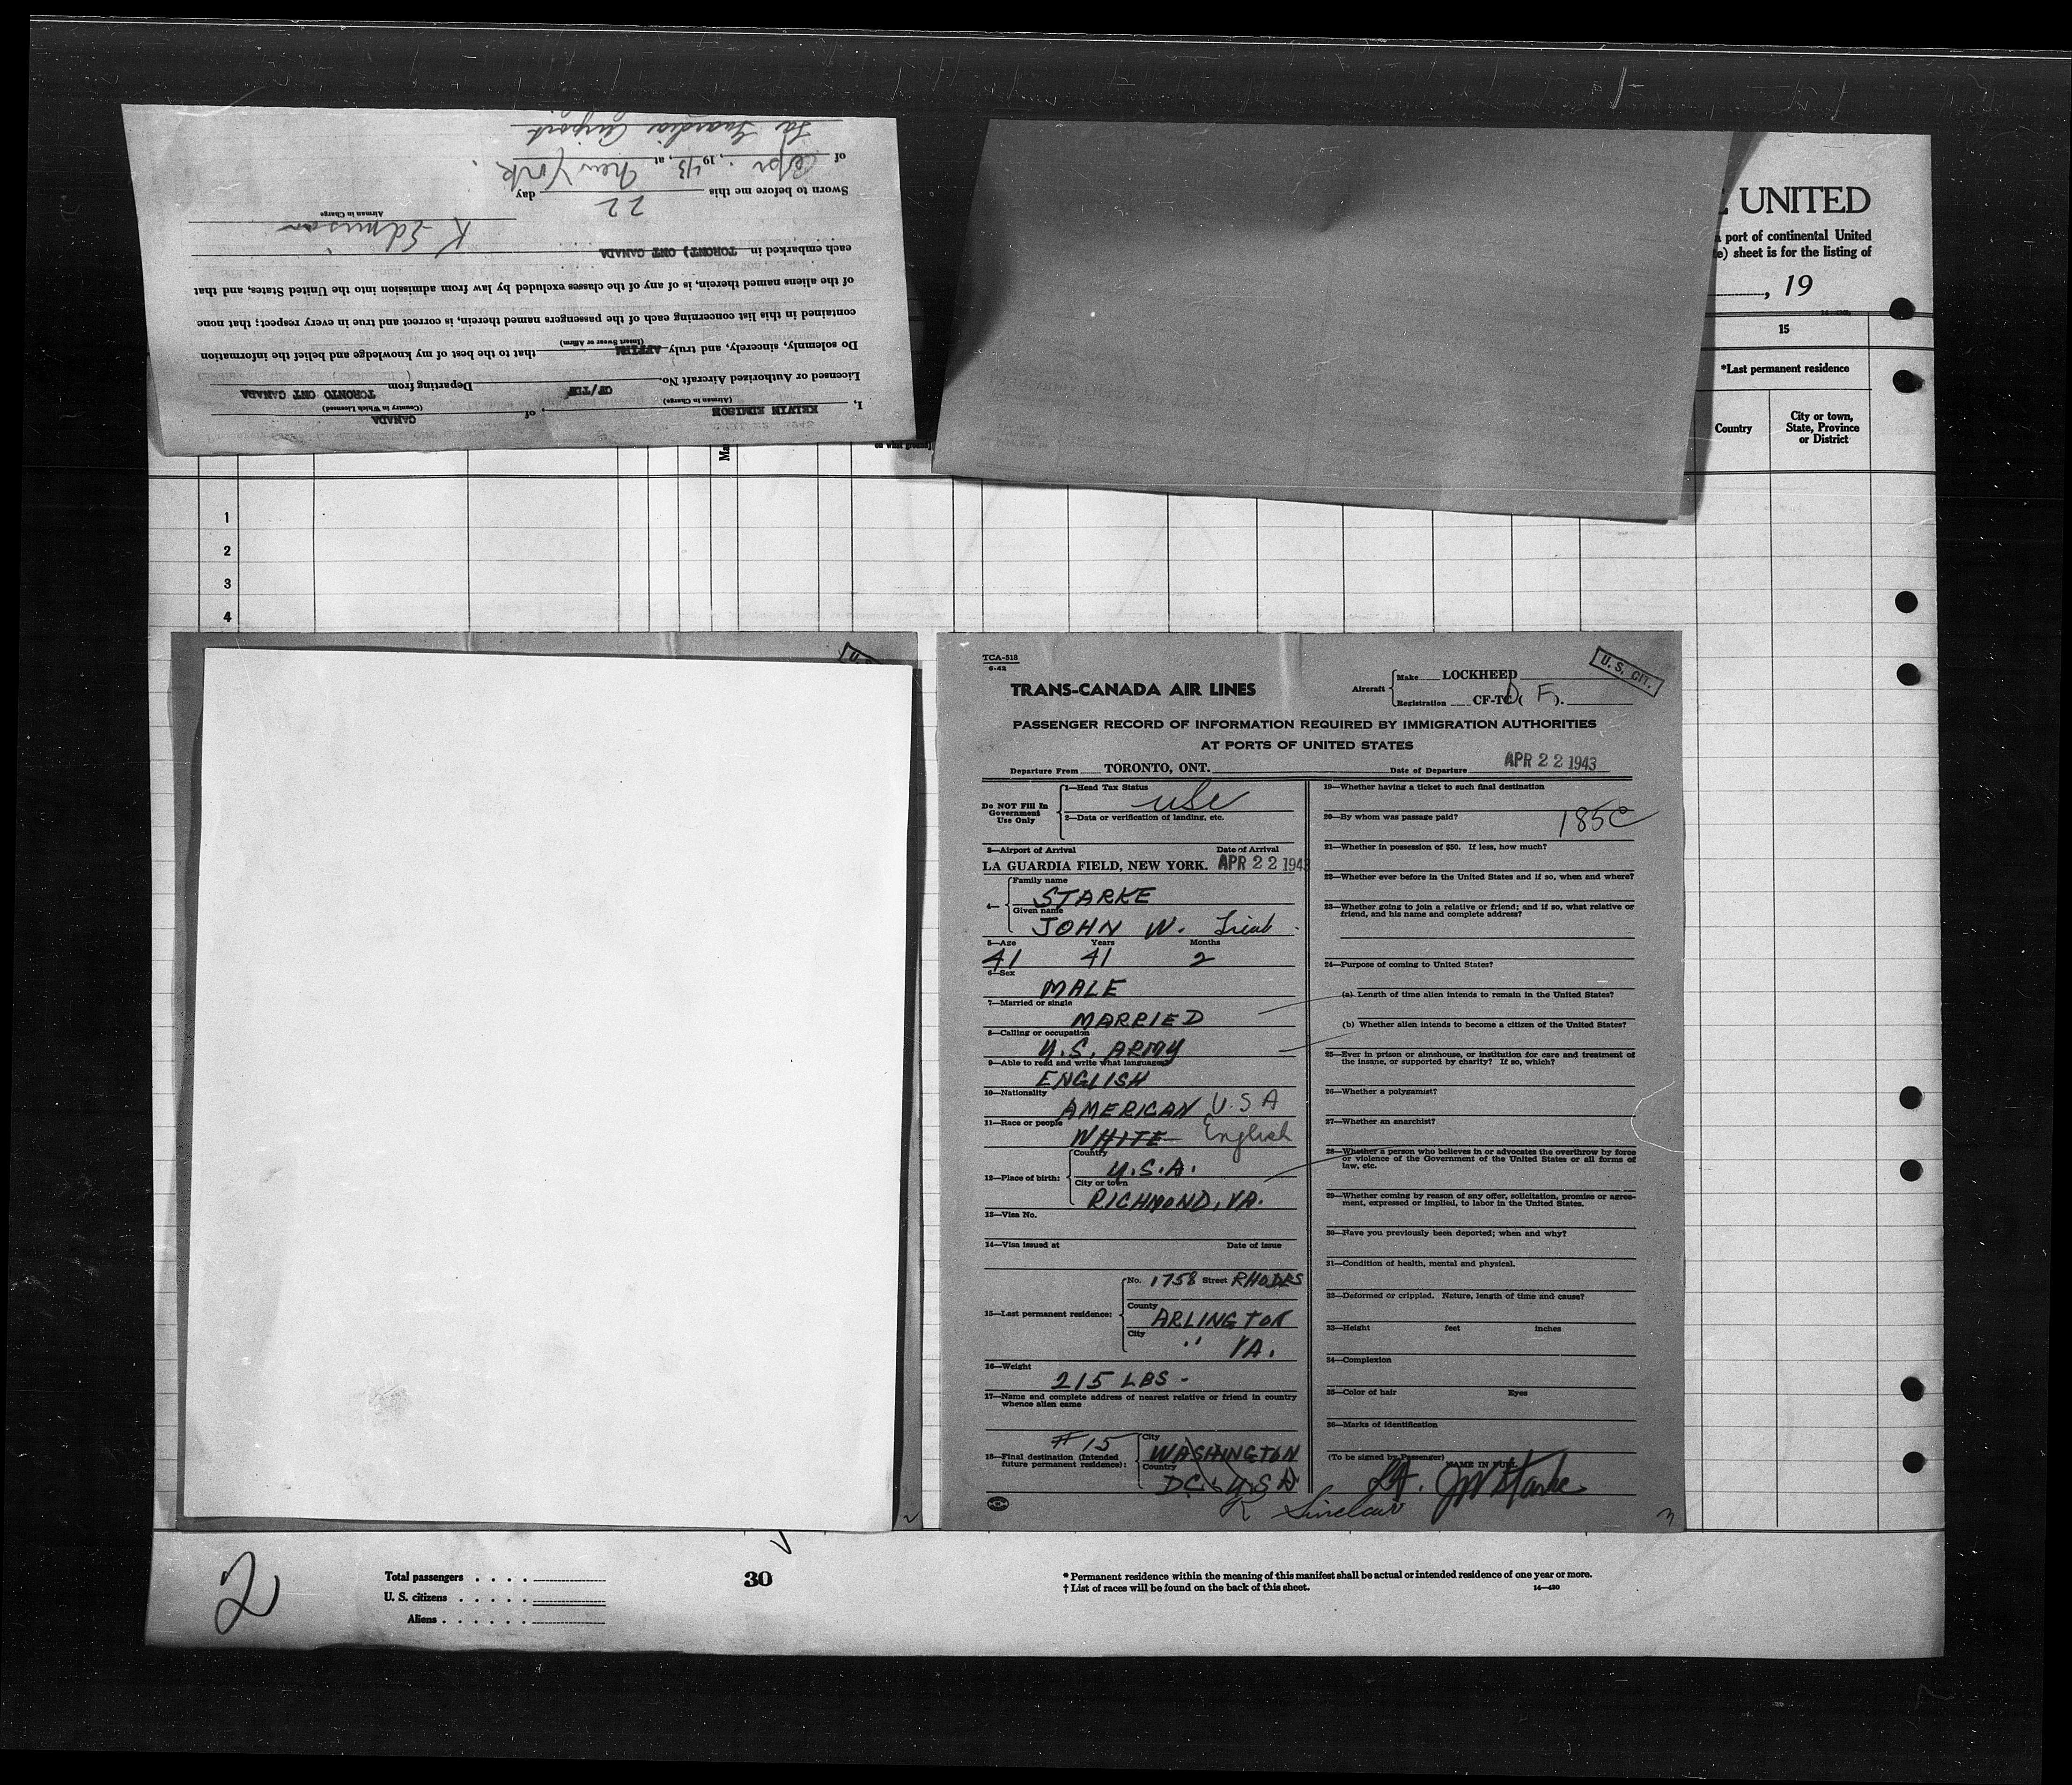 I, KELVIN EDMISON of CANADA
(Airman in Charge) (Country in Which Licensed)
Licensed or Authorized Aircraft No. Departing from TORONTO ONT CANADA
Do solemnly, sincerely, and truly AFFIRM that to the best of my knowledge and belief the information
(Insert Swear or Affirm)
contained in this list concerning each of the passengers named therein, is correct and true in every respect; that none
of the aliens named therein, is of any of the classes excluded by law from admission into the United States, and that
each embarked in TORONT) ONT CANADA
K Edmison
Airman in Charge
Sworn to before me this 22 day
of Apr. , 19 43, at New York.
La Guardia Airport
UNITED
port of continental United
sheet is for the listing of
, 19
15
*Last permanent residence
Country
City or town,
State, Province
or District
1
2
3
4
TCA-518
6-42
TRANS-CANADA AIR LINES
Aircraft
Make LOCKHEED
Registration CF-TC( D F ).
U. S. CIT.
PASSENGER RECORD OF INFORMATION REQUIRED BY IMMIGRATION AUTHORITIES
AT PORTS OF UNITED STATES
Departure From TORONTO, ONT. Date of Departure APR 22 1943
Do NOT Fill In
Government
Use Only
1—Head Tax Status
USC
2—Data or verification of landing, etc.
3—Airport of Arrival Date of Arrival
LA GUARDIA FIELD, NEW YORK. APR 22 1943
4—
Family name
STARKE
Given name
JOHN W. Lieut.
5—Age Years Months
41 41 2
6—Sex
MALE
7—Married or single
MARRIED
8—Calling or occupation
U.S. ARMY
9—Able to read and write what languages
ENGLISH
10—Nationality
AMERICAN U.S A
11—Race or people
WHITE English
12—Place of birth:
Country
U.S.A.
City or town
RICHMOND, VA.
13—Visa No.
14—Visa issued at Date of issue
15—Last permanent residence:
No. 1758 Street RHODES
County
ARLINGTON
City
" VA.
16—Weight
215 LBS -
17—Name and complete address of nearest relative or friend in country
whence alien came
# 15
18—Final destination (Intended
future permanent residence):
City
WASHINGTON
Country
DC. U.S A
19—Whether having a ticket to such final destination
20—By whom was passage paid?
185C
21—Whether in possession of $50. If less, how much?
22—Whether ever before in the United States and if so, when and where?
23—Whether going to join a relative or friend; and if so, what relative or
friend, and his name and complete address?
24—Purpose of coming to United States?
(a) Length of time alien intends to remain in the United States?
(b) Whether alien intends to become a citizen of the United States?
25—Ever in prison or almshouse, or institution for care and treatment of
the insane, or supported by charity? If so, which?
26—Whether a polygamist?
27—Whether an anarchist?
28—Whether a person who believes in or advocates the overthrow by force
or violence of the Government of the United States or all forms of
law, etc.
29—Whether coming by reason of any offer, solicitation, promise or agree-
ment, expressed or implied, to labor in the United States.
30—Have you previously been deported; when and why?
31—Condition of health, mental and physical.
32—Deformed or crippled. Nature, length of time and cause?
33—Height feet inches
34—Complexion
35—Color of hair Eyes
36—Marks of identification
(To be signed by Passenger) NAME IN FULL
Lt. JW Starke
Sinclair
3
2
2
Total passengers . . . .
U. S. citizens . . . . .
Aliens . . . . . .
30
* Permanent residence within the meaning of this manifest shall be actual or intended residence of one year or more.
† List of races will be found on the back of this sheet.
14—430